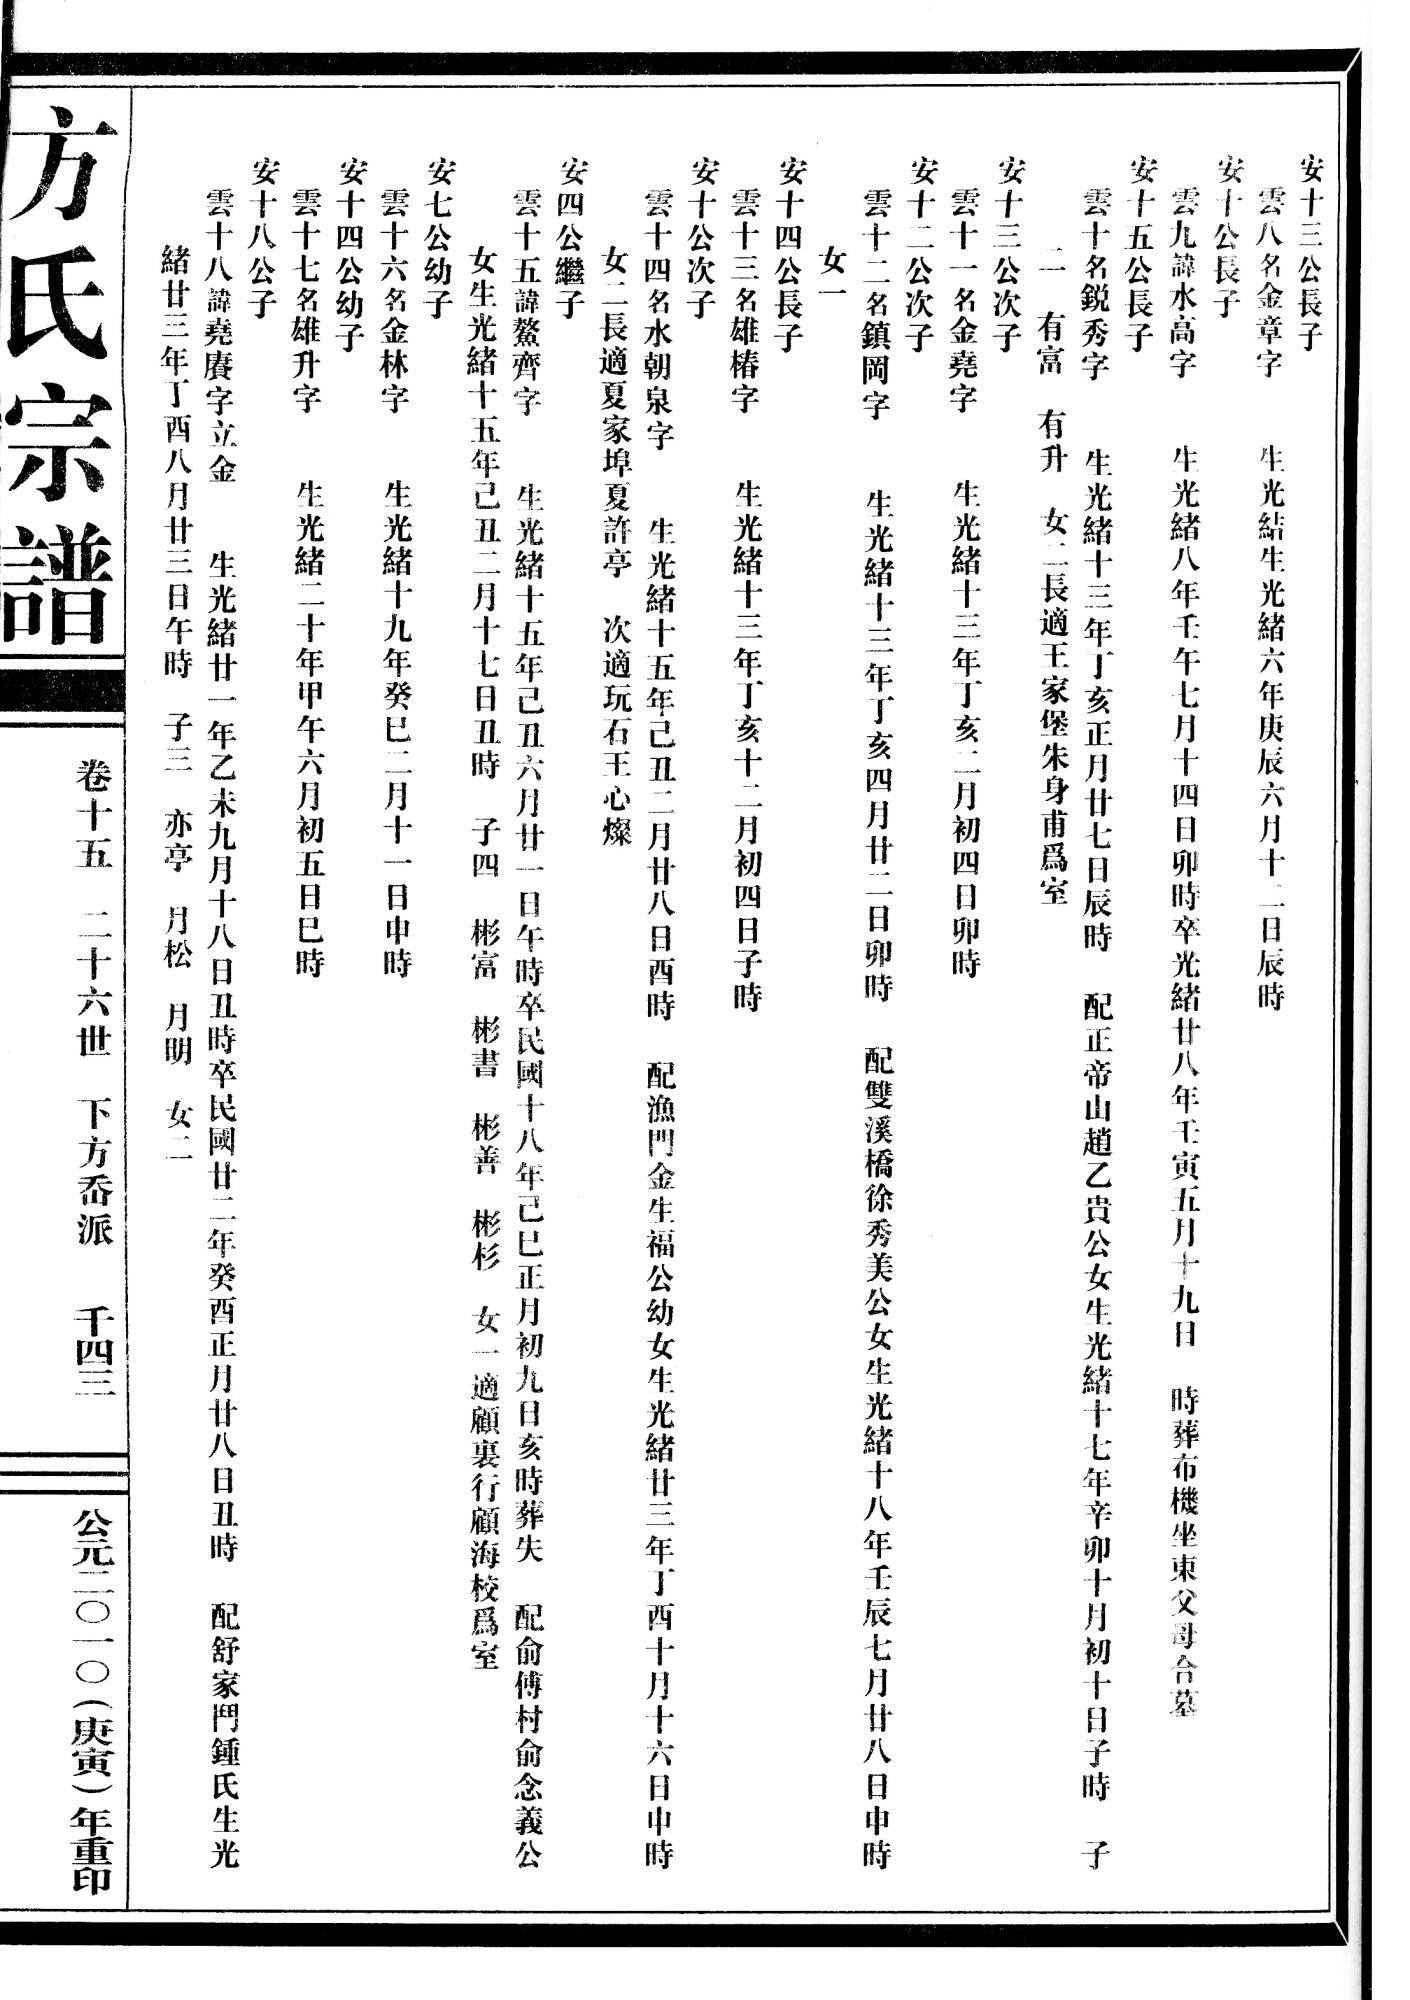 安十三公長子
雲八名金章字　生光結生光緒六年庚辰六月十二日辰時
安十公長子
雲九諱水高字　生光緒八年壬午七月十四日卯時卒光緒廿八年壬寅五月十九日　時葬布機坐東父母合墓
安十五公長子
雲十名鋭秀字　生光緒十三年丁亥正月廿七日辰時　配正帝山趙乙貴公女生光緒十七年辛卯十月初十日子時　子
二　有富　有升　女二長適王家堡朱身甫爲室
安十三公次子
雲十一名金堯字　生光緒十三年丁亥二月初四日卯時
安十二公次子
雲十二名鎮岡字　生光緒十三年丁亥四月廿二日卯時　配雙溪橋徐秀美公女生光緒十八年壬辰七月廿八日申時
女一
安十四公長子
雲十三名雄椿字　生光緒十三年丁亥十二月初四日子時
安十公次子
雲十四名水朝泉字　生光緒十五年己丑二月廿八日酉時　配漁門金生福公幼女生光緒廿三年丁酉十月十六日申時
女二長適夏家埠夏許亭　次適玩石王心燦
安四公繼子
雲十五諱鰲齊字　生光緒十五年己丑六月廿一日午時卒民國十八年己巳正月初九日亥時葬失　配俞傅村俞念義公
女生光緒十五年己丑二月十七日丑時　子四　彬富　彬書　彬善　彬杉　女一適顧裏行顧海校爲室
安七公幼子
雲十六名金林字　生光緒十九年癸巳二月十一日申時
安十四公幼子
雲十七名雄升字　生光緒二十年甲午六月初五日巳時
安十八公子
雲十八諱堯賡字立金　生光緒廿一年乙未九月十八日丑時卒民國廿二年癸酉正月廿八日丑時　配舒家鬥鍾氏生光
緒廿三年丁酉八月廿三日午時　子三　亦亭　月松　月明　女二
方氏宗譜
卷十五　二十六世　下方岙派　千四三
公元二〇一〇（庚寅）年重印